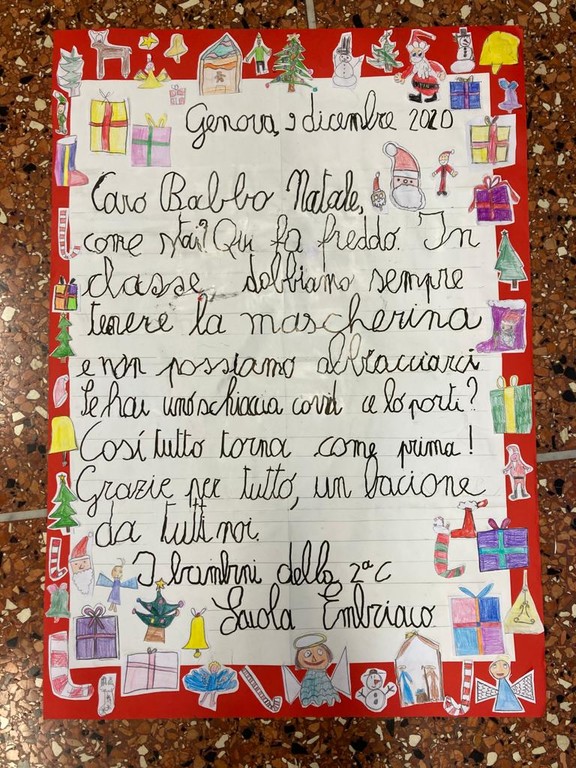 Genova, 9 dicembre 2020
Caro Babbo Natale,
come stai? Qui fa freddo. In
classe dobbiamo sempre
tenere la mascherina
e non possiamo abbracciarci
Se hai uno schiaccia covid ce lo porti?
Così tutto torna come prima!
Grazie per tutto, un bacione
da tutti noi.
I bambini della 2ªC
Scuola Embriaco